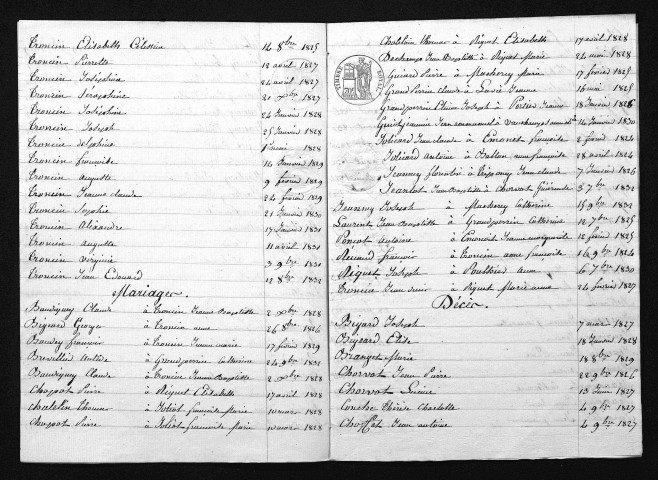 Troncin Elisabeth Célestine 16 8bre 1825
Troncin Pierrette 18 avril 1827
Troncin Joséphine 24 avril 1827
Troncin Séraphine 21 Xbre 1827
Troncin Joséphine 24 Janvier 1828
Troncin Joseph 25 Janvier 1828
Troncin delphine 1er mai 1828
Troncin françoise 14 Janvier 1829
Troncin auguste 9 février 1829
Troncin Jeanne claude 24 février 1829
Troncin Sophie 21 Janvier 1830
Troncin Alixandre 17 Janvier 1830
Troncin auguste 11 avril 1831
Troncin virginie 3 9bre 1831
Troncin Jean Edouard 12 8bre 1832
Mariages.
Baudiguey Claude à Troncin Jeanne Baptiste 2 Xbre 1828
Bignard George à Troncin anne 26 8bre 1826
Baudey françois à Troncin Jeanne marie 17 février 1829
Brevillier à Grandperrin Catherine 24 9bre 1832
Baudiguey Claude à Troncin Jeanne Baptiste 2 Xbre 1828
Chagrot Pierre à Reguet Elisabeth 17 avril 1828
Chatelin Thomas à Joliot françoise Marie 10 mars 1828
Chagrot Pierre à Joliot françoise Marie 10 mars 1828
Chatelain Thomas à Riguet Elisabeth 17 avril 1828
Dechamps Jean Baptiste à Riguet Marie 24 mai 1828
Guinard Pierre à Marie 17 février 1825
Grand Perrin Claude à Jeanne 16 mai 1825
Grandperrin Joseph à Jeanne 18 Janvier 1826
Jean à 14 Janvier 1830
Jean claude à françoise 2 février 1824
antoine à anne françoise 28 avril 1824
Jeanney florentin à Jeanne claude 7 Janvier 1826
Jean Baptiste à 3 7bre 1832
Jeanney Joseph à Catherine 15 9bre 1832
Laurent Jean Baptiste à Grandperrin Catherine 12 7bre 1825
Poncot antoine à Jeanne marguerite 12 février 1825
Renaud françois à Troncin anne françoise 16 9bre 1824
Reguet Joseph à Pouthier anne 6 7bre 1830
Troncin Jean à Riguet Marie anne 24 février 1827
Décès.
Bizard Joseph 7 mars 1827
Elise 18 Janvier 1828
Marie 18 8bre 1829
Chorvot Jean Pierre 22 9bre 1826
Chorvot 13 Juin 1827
Charlotte 4 9bre 1827
Choffat Jean antoine 4 9bre 1827